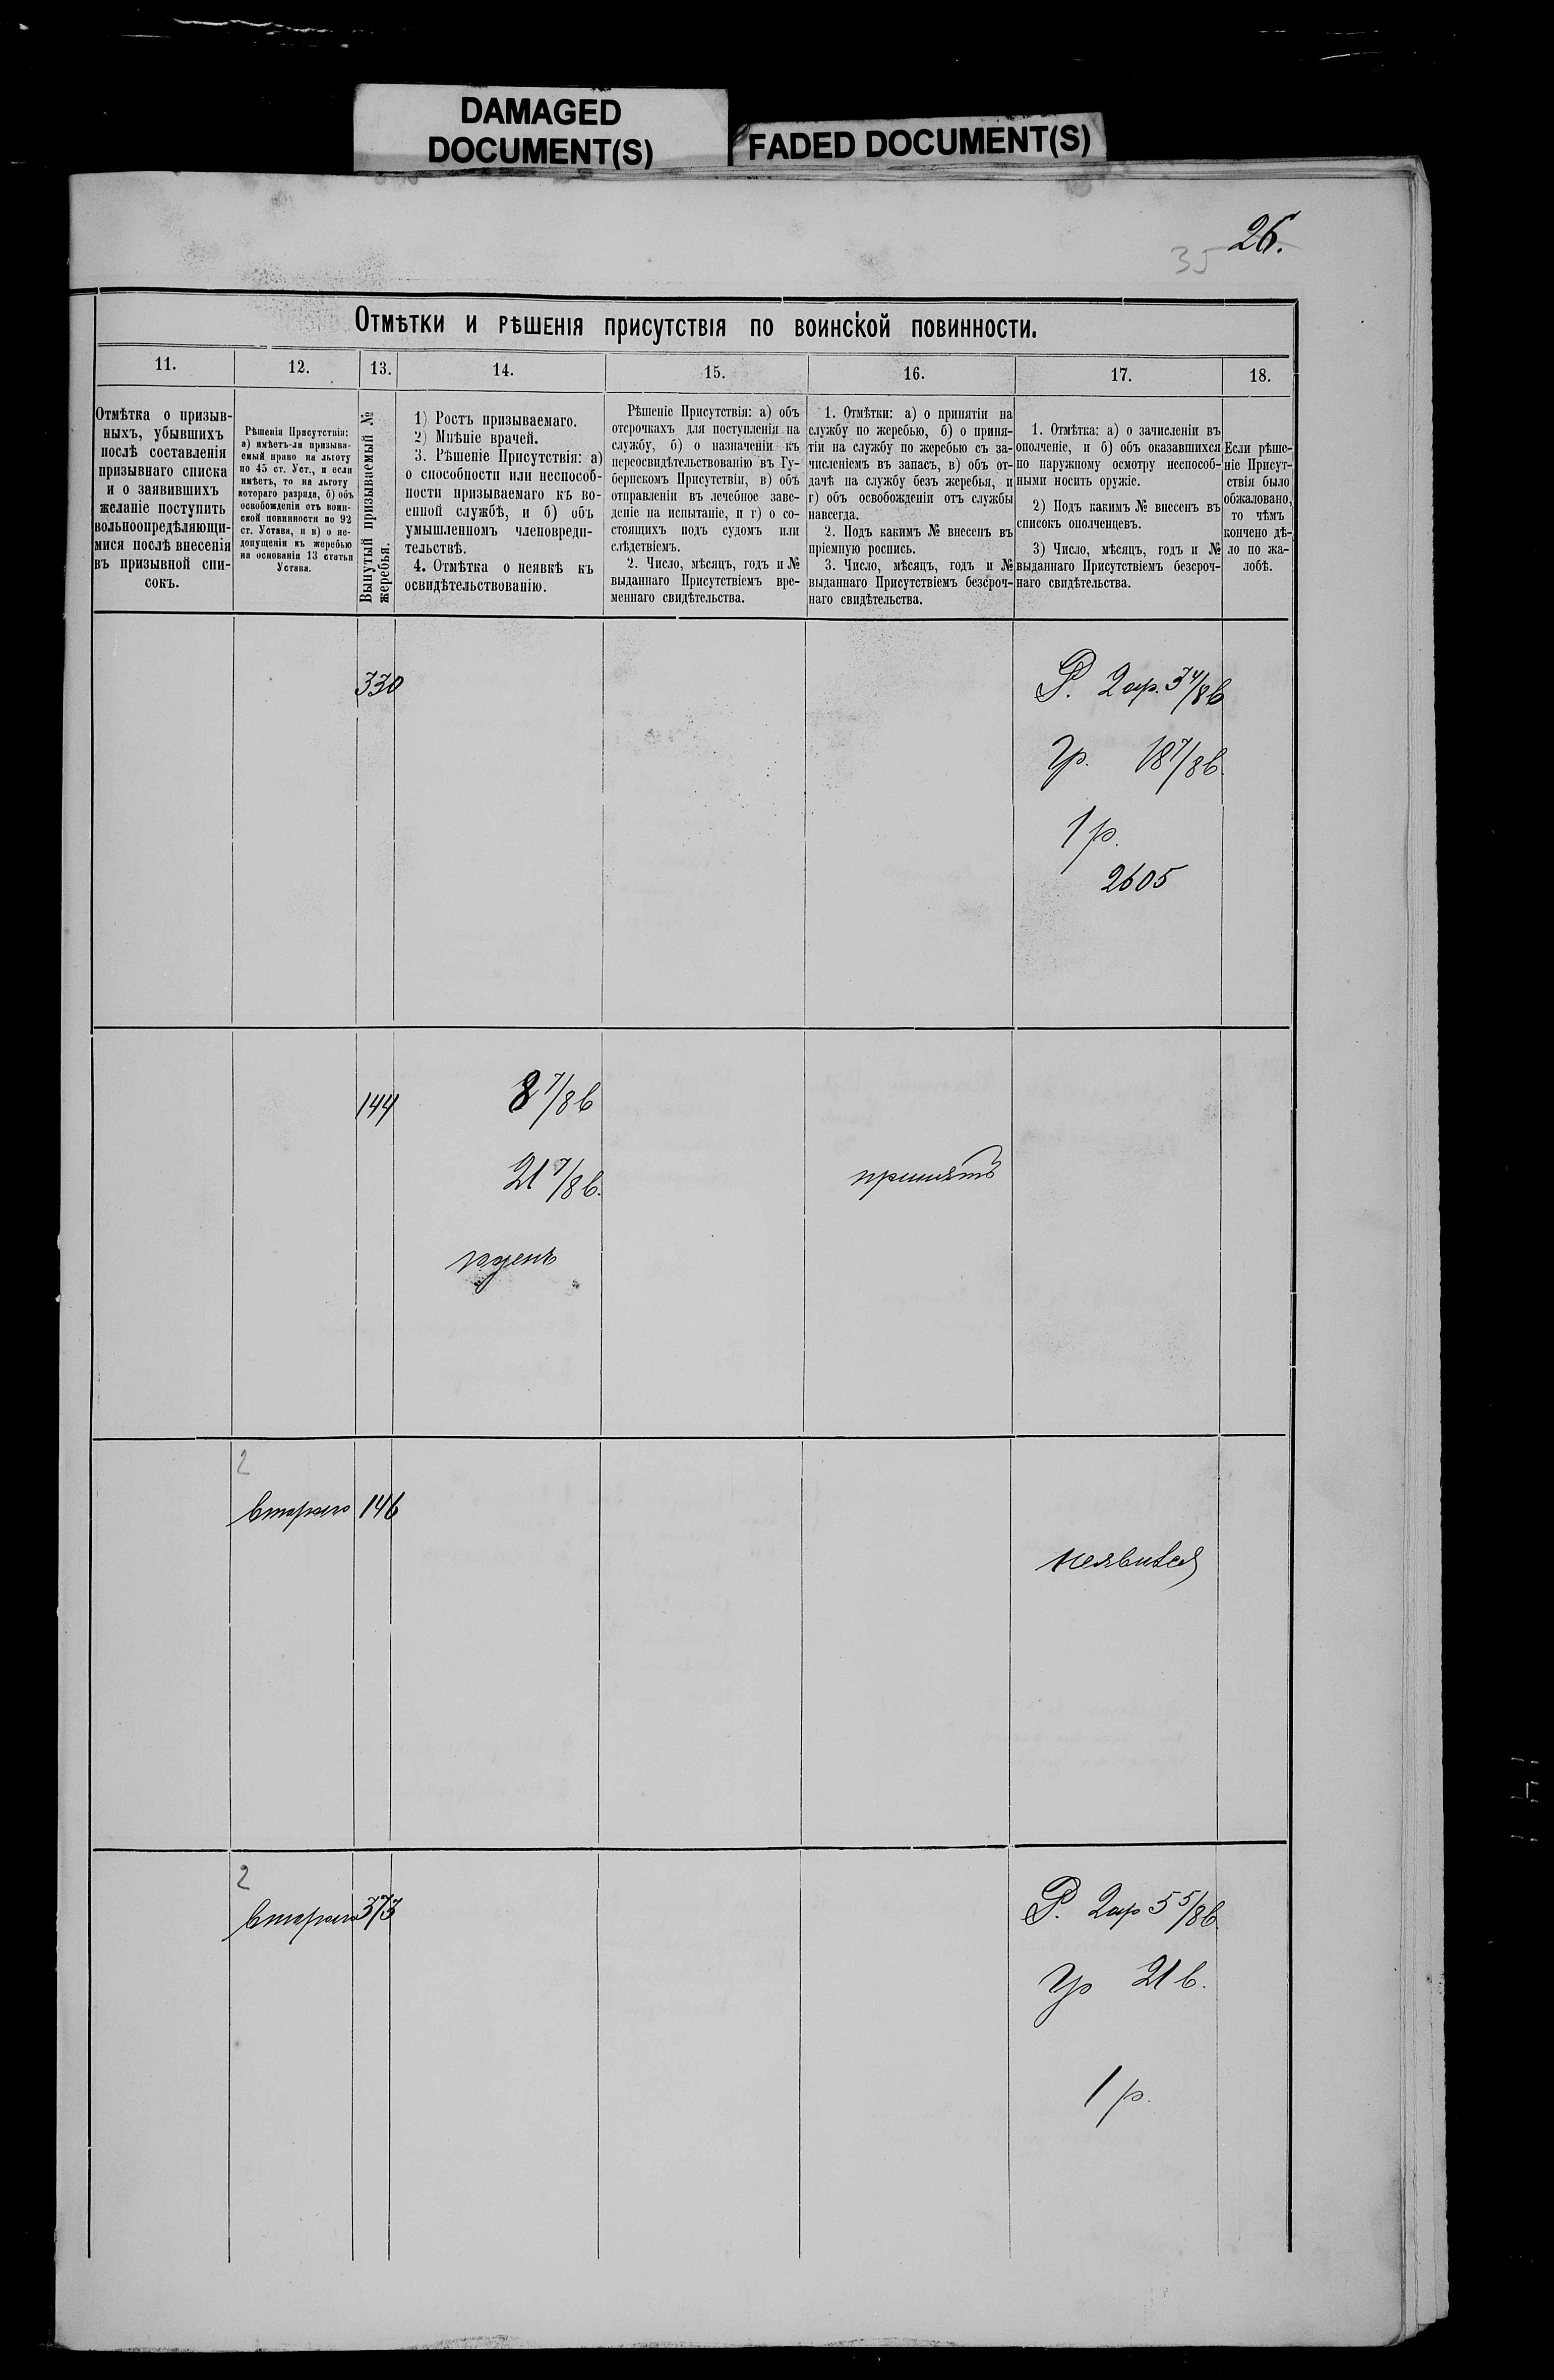 DAMAGED
DOCUMENT(S)
FADED DOCUMENT(S)
26.
35
Отмѣтки и рѣшенія присутствія по воинской повинности.
11.
12.
13.
14.
15.
16.
17.
18.
Отмѣтка о призыв-
ныхъ, убывшихъ
послѣ составленія
призывнаго списка
и о заявившихъ
желаніе поступить
вольноопредѣляющи-
мися послѣ внесенія
въ призывной спи-
сокъ.
Рѣшенія Присутствія:
а) имѣетъ-ли призыва-
емый право на льготу
по 45 ст. Уст., и если
имѣетъ, то на льготу
котораго разряда, б) объ
освобожденіи отъ воин-
ской повинности по 92
ст. Устава, и в) о не-
допущеніи къ жеребью
на основаніи 13 статьи
Устава.
Вынутый призываемый №
жеребья.
1) Ростъ призываемаго.
2) Мнѣніе врачей.
3. Рѣшеніе Присутствія: а)
о способности или неспособ-
ности призываемаго къ во-
енной службѣ, и б) объ
умышленномъ членовреди-
тельствѣ.
4. Отмѣтка о неявкѣ къ
освидѣтельствованію.
Рѣшеніе Присутствія: а) объ
отсрочкахъ для поступленія на
службу, б) о назначеніи къ
переосвидѣтельствованію въ Гу-
бернскомъ Присутствіи, в) объ
отправленіи въ лечебное заве-
деніе на испытаніе, и г) о со-
стоящихъ подъ судомъ или
слѣдствіемъ.
2. Число, мѣсяцъ, годъ и №
выданнаго Присутствіемъ вре-
меннаго свидѣтельства.
1. Отмѣтки: а) о принятіи на
службу по жеребью, б) о приня-
тіи на службу по жеребью съ за-
численіемъ въ запасъ, в) объ от-
дачѣ на службу безъ жеребья, и
г) объ освобожденіи отъ службы
навсегда.
2. Подъ какимъ № внесенъ въ
пріемную роспись.
3. Число, мѣсяцъ, годъ и №
выданнаго Присутствіемъ безсроч-
наго свидѣтельства.
1. Отмѣтка: а) о зачисленіи въ
ополченіе, и б) объ оказавшихся
по наружному осмотру неспособ-
ными носить оружіе.
2) Подъ какимъ № внесенъ въ
списокъ ополченцевъ.
3) Число, мѣсяцъ, годъ и №
выданнаго Присутствіемъ безсроч-
наго свидѣтельства.
Если рѣше-
ніе Присут-
ствія было
обжаловано,
то чѣмъ
кончено дѣ-
ло по жа-
лобѣ.
330
Р. 2 ар. 3 4/8 в
Гр. 18 7/8 в.
1 р.
2605
144
8 7/8 в
21 7/8 в.
принятъ
годенъ
2
втораго 146
неявился
2
втораго 373
Р. 2 ар 5 5/8 в.
Гр 21 в.
1 р.